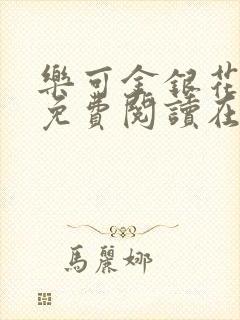 樂可金銀花
免費閱讀在
馬麗娜